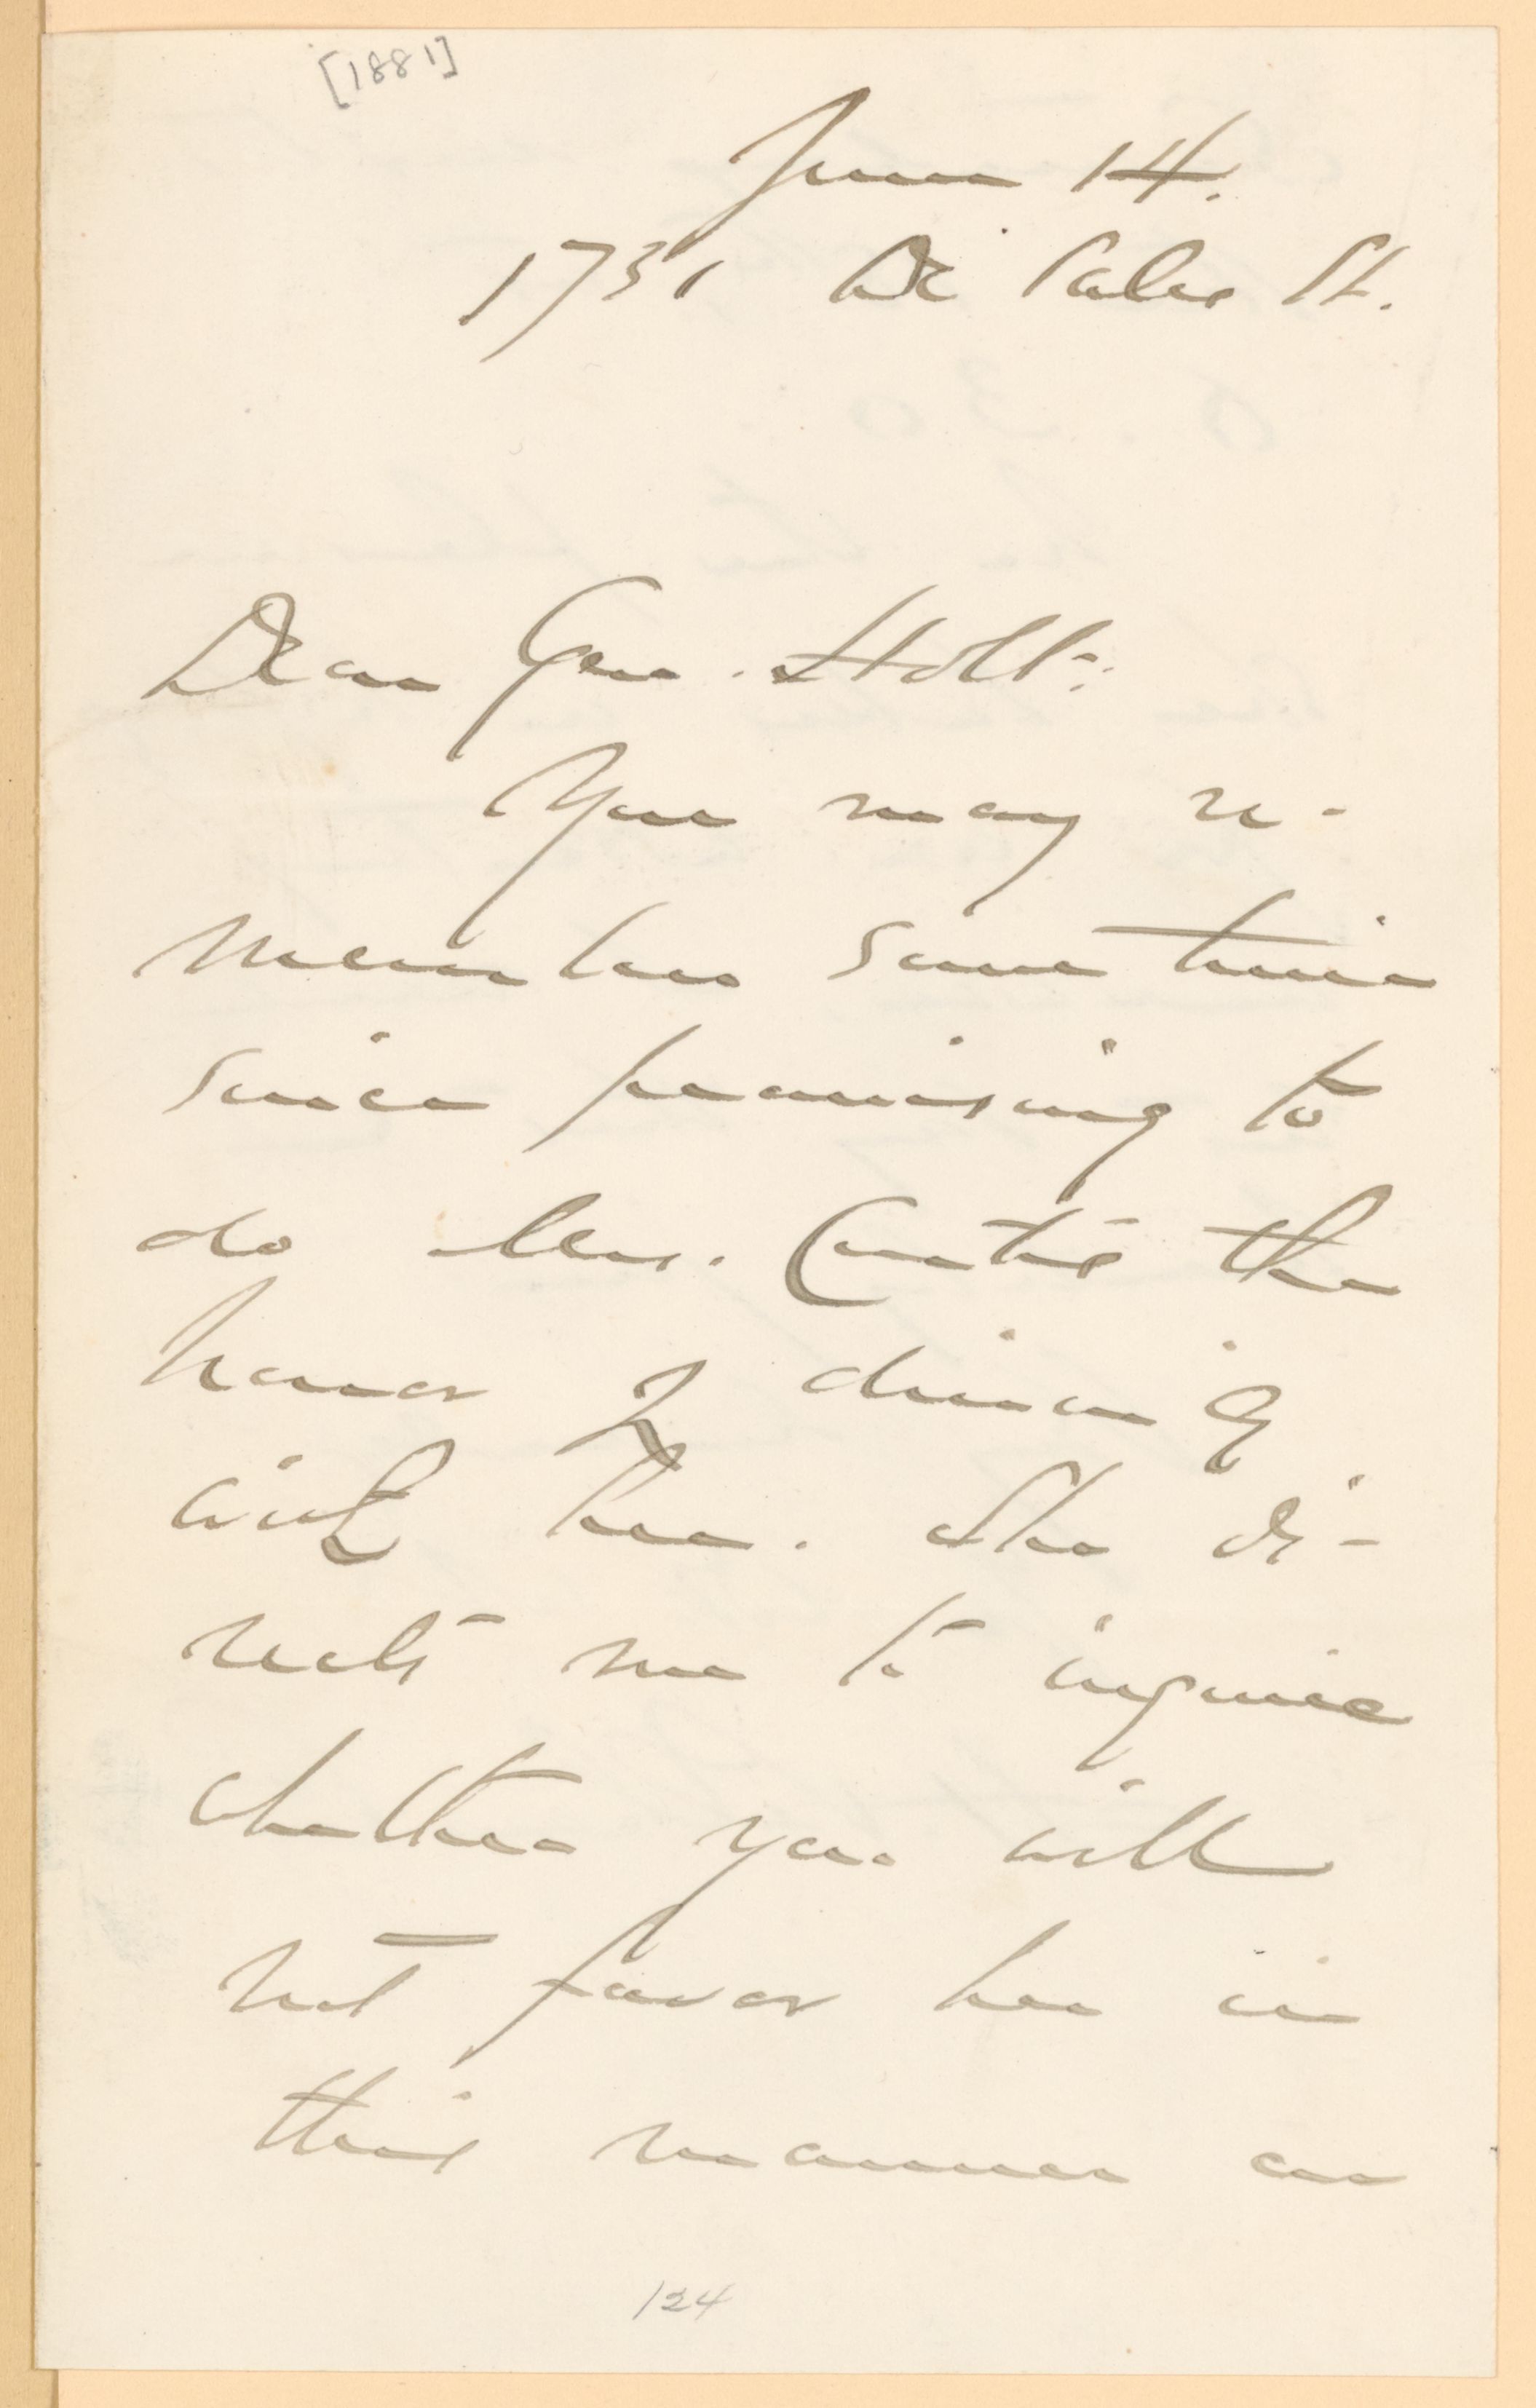 [1881]
June 14.
1731 De Sales St.
Dear Gen. Holt:
You may re-
member some time
since promising to
do Mrs. Curtis the
honor of dining
with her. She di-
rects me to inquire
whether you will
not favor her in
this manner on
124